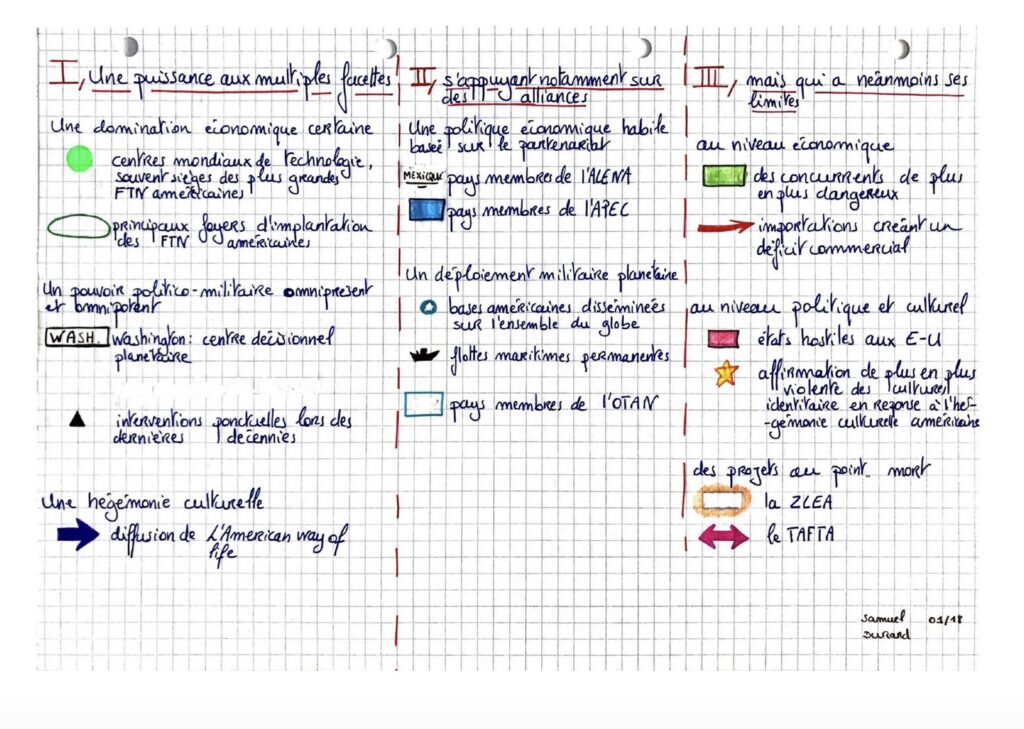 I, Une puissance aux multiples facettes
Une domination économique certaine
centres mondiaux de technologie,
souvent sièges des plus grandes
FTN américaines
principaux foyers d'implantation
des FTN américaines
Un pouvoir politico-militaire omniprésent
et omnipotent
WASH. Washington: centre décisionnel
planétaire
interventions ponctuelles lors des
dernières décennies
Une hégémonie culturelle
diffusion de L'American way of
life
II, s'appuyant notamment sur
des alliances
Une politique économique habile
basée sur le partenariat
MEXIQUE pays membres de l'ALENA
pays membres de l'APEC
Un déploiement militaire planétaire
bases américaines disséminées
sur l'ensemble du globe
flottes maritimes permanentes
pays membres de l'OTAN
III, mais qui a néanmoins ses
limites
au niveau économique
des concurrents de plus
en plus dangereux
importations créant un
déficit commercial
au niveau politique et culturel
états hostiles aux E-U
affirmation de plus en plus
violente des cultures
identitaire en réponse à l'hé-
-gémonie culturelle américaine
des projets au point mort
la ZLEA
le TAFTA
Samuel 01/18
Durand